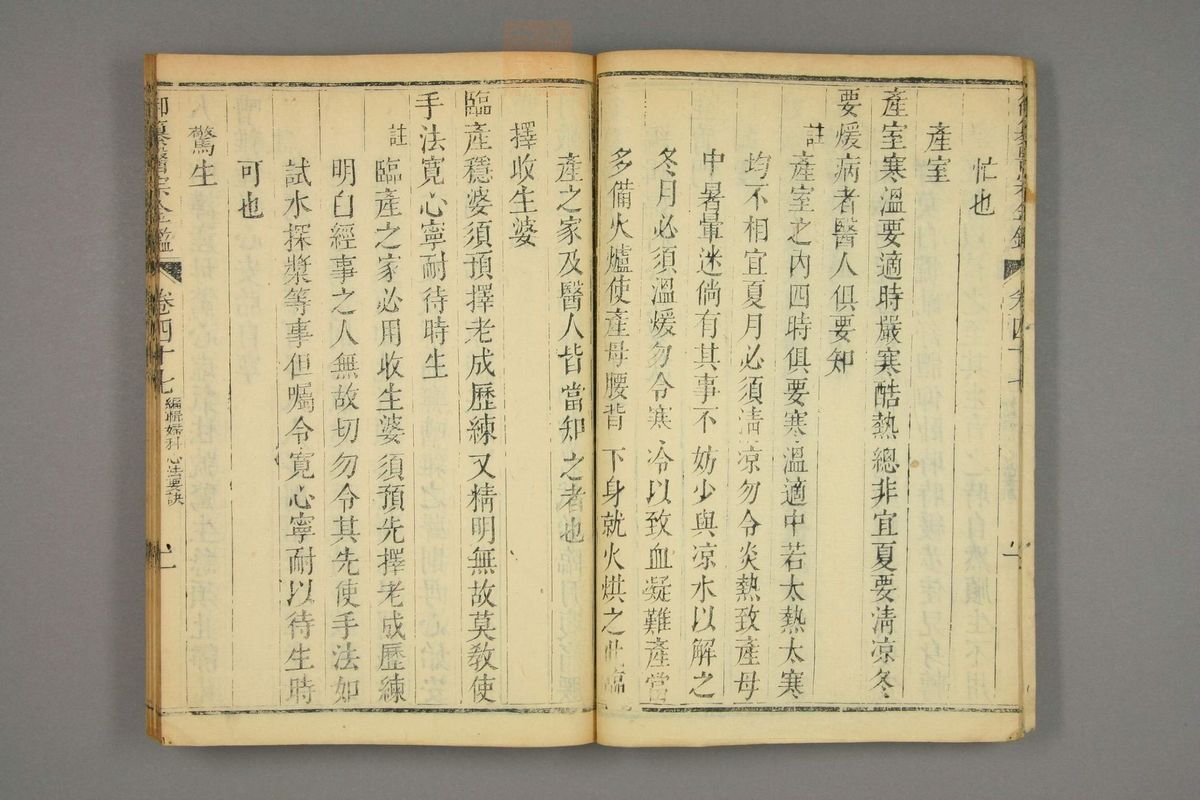 忙也
產室
產室寒溫要適時嚴寒酷熱總非宜夏要清凉冬
要煖病者醫人俱要知
註
產室之內四時俱要寒溫適中若太熱太寒
均不相宜夏月必須清凉勿令炎熱致產母
中暑暈迷倘有其事不妨少與凉水以解之
冬月必須溫煖勿令寒冷以致血凝難產當
多備火爐使產母腰背下身就火烘之此臨
產之家及醫人皆當知之者也
擇收生婆
臨產穩婆須預擇老成歷練又精明無故莫教使
手法寬心寧耐待時生
註
臨產之家必用收生婆須預先擇老成歷練
明白經事之人無故切勿令其先使手法如
試水探漿等事但囑令寬心寧耐以待生時
可也
驚生
御纂醫宗金鑑
卷四十七
編輯婦科心法要訣